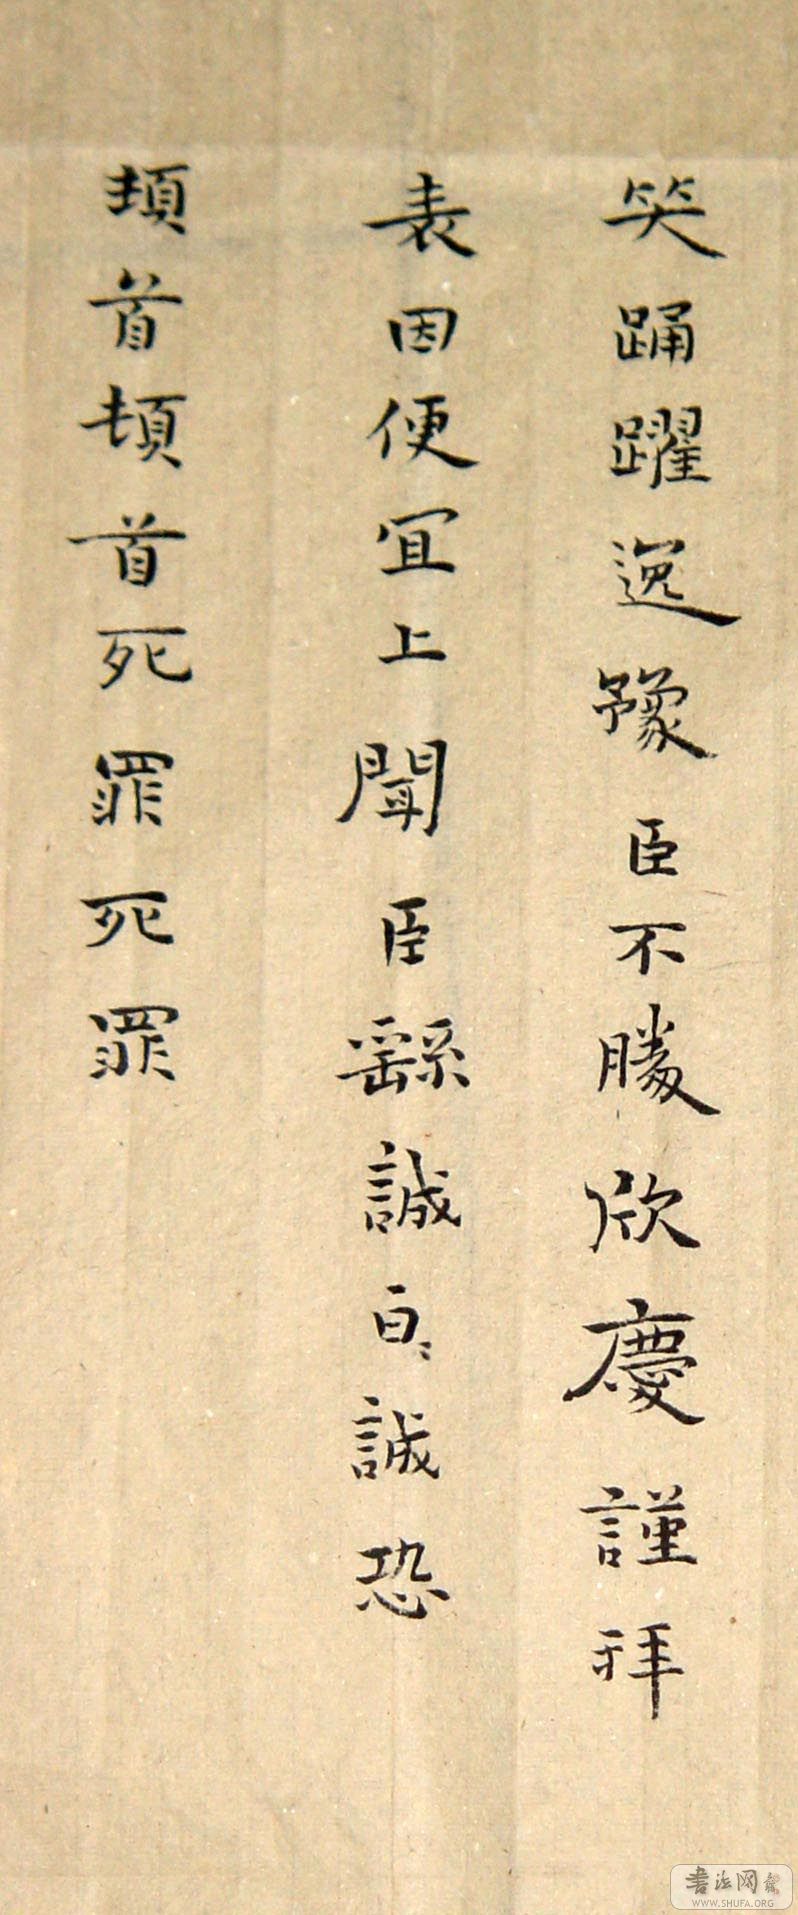 笑踊躍逸豫臣不勝欣慶謹拜
表因便宜上聞臣繇誠皇〻誠恐
頓首頓首死罪死罪
書法网
WWW.SHUFA.ORG